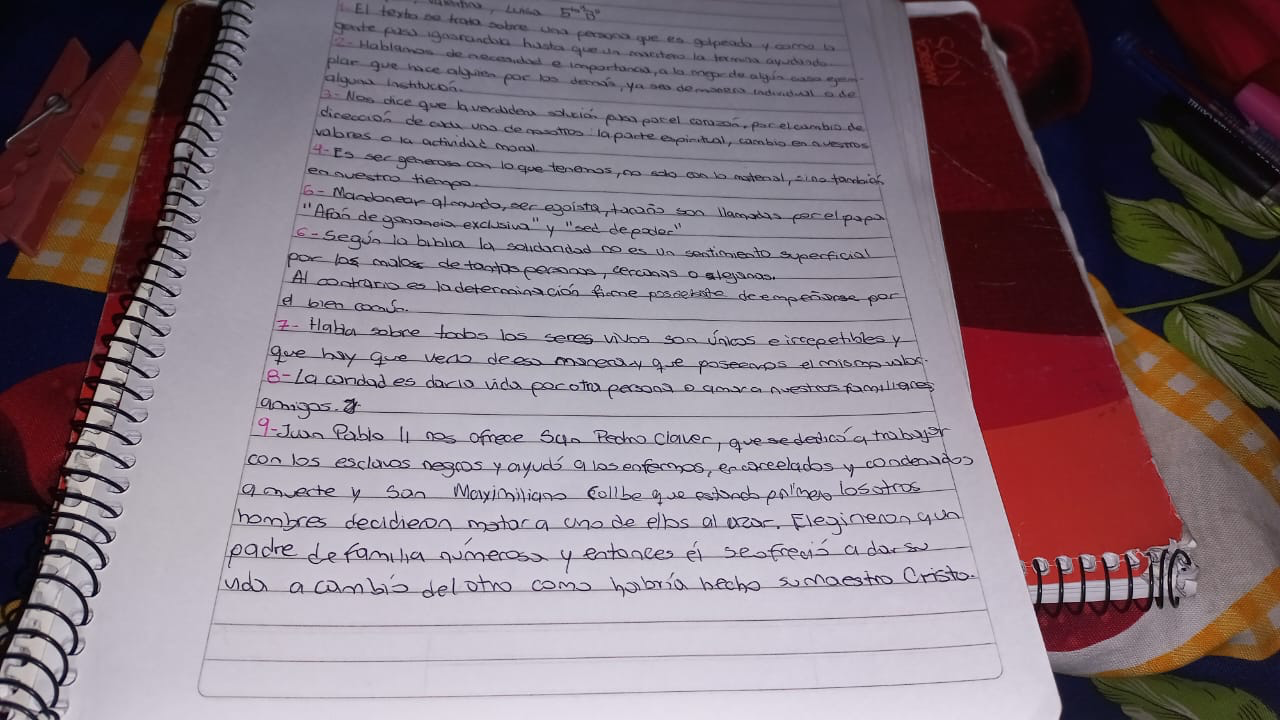 Valentina, Luisa 5to "B"
1- El texto se trata sobre una persona que es golpeada y como la
gente pasa ignorandola hasta que un macitero la termina ayudando.
2- Hablamos de necesidad e importancia, a la mejor de algún caso ejem-
plar que hace alguien por los demás, ya sea de manera individual o de
alguna institucion.
3- Nos dice que la verdadera solución pasa por el corazón, por el cambio de
dirección de cada uno de nosotros: la parte espiritual, cambio en nuestros
valores o la actividad moral.
4- Es ser generoso con lo que tenemos, no solo con lo material, sino también
en nuestro tiempo.
5- Mandonear al mundo, ser egoísta, tacaño son llamadas por el papa
"Afán de ganancia exclusiva" y "sed de poder"
6- Según la biblia la solidaridad no es un sentimiento superficial
por los males de tantas personas, cercanas o alejanas.
Al contrario es la determinación firme de empeñarse por
el bien común.
7- Habla sobre todos los seres vivos son únicos e irrepetibles y
que hay que verlo de esa manera y que poseemos el mismo valor.
8- La caridad es dar la vida por otra persona o amar a nuestros familiares,
amigos.
9- Juan Pablo II nos ofrece San Pedro Claver, que se dedicó a trabajar
con los esclavos negros y ayudó a los enfermos, encarcelados y condenados
a muerte y San Maximiliano Collbe que estando los otros
hombres decidieron matar a uno de ellos al azar. Eligineron a un
padre de familia númerosa y entonces él se ofreció a dar su
vida a cambio del otro como habría hecho su maestro Cristo.
SON